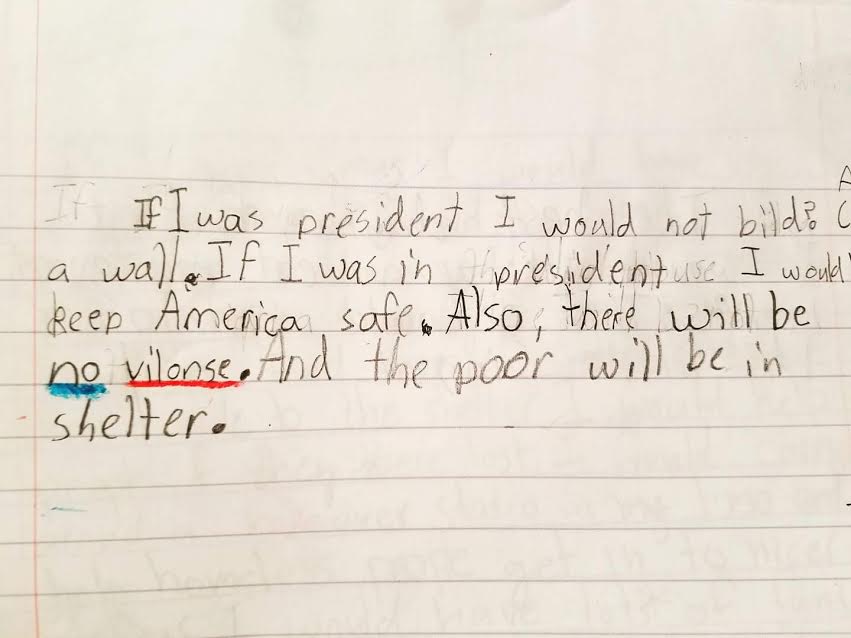 If If I was president I would not bild?
a wall. If I was in president use I would
keep America safe. Also, there will be
no vilonse. And the poor will be in
shelter.